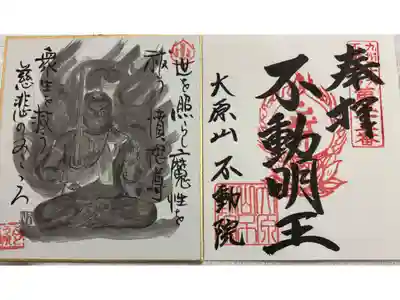 世を照らし魔性を
祓う憤怒尊
衆生を救う
慈悲のみこころ
奉拝
不動明王
大原山 不動院